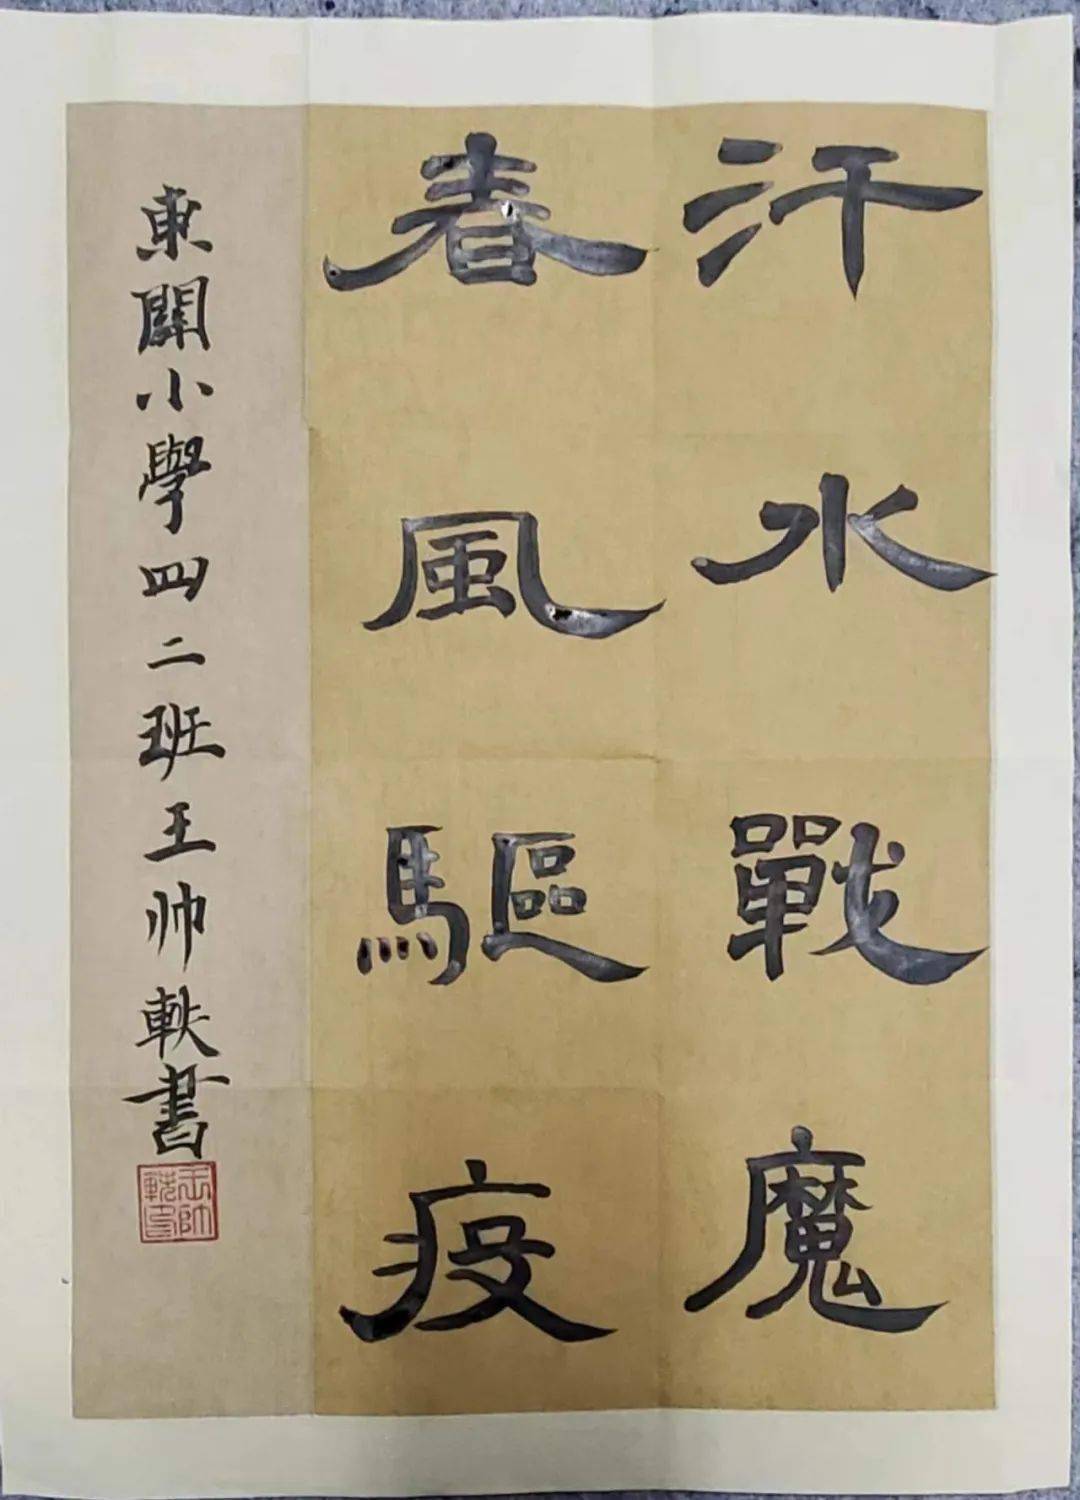 汗水戰魔
春風驅疫
東關小學四二班王帅軼書